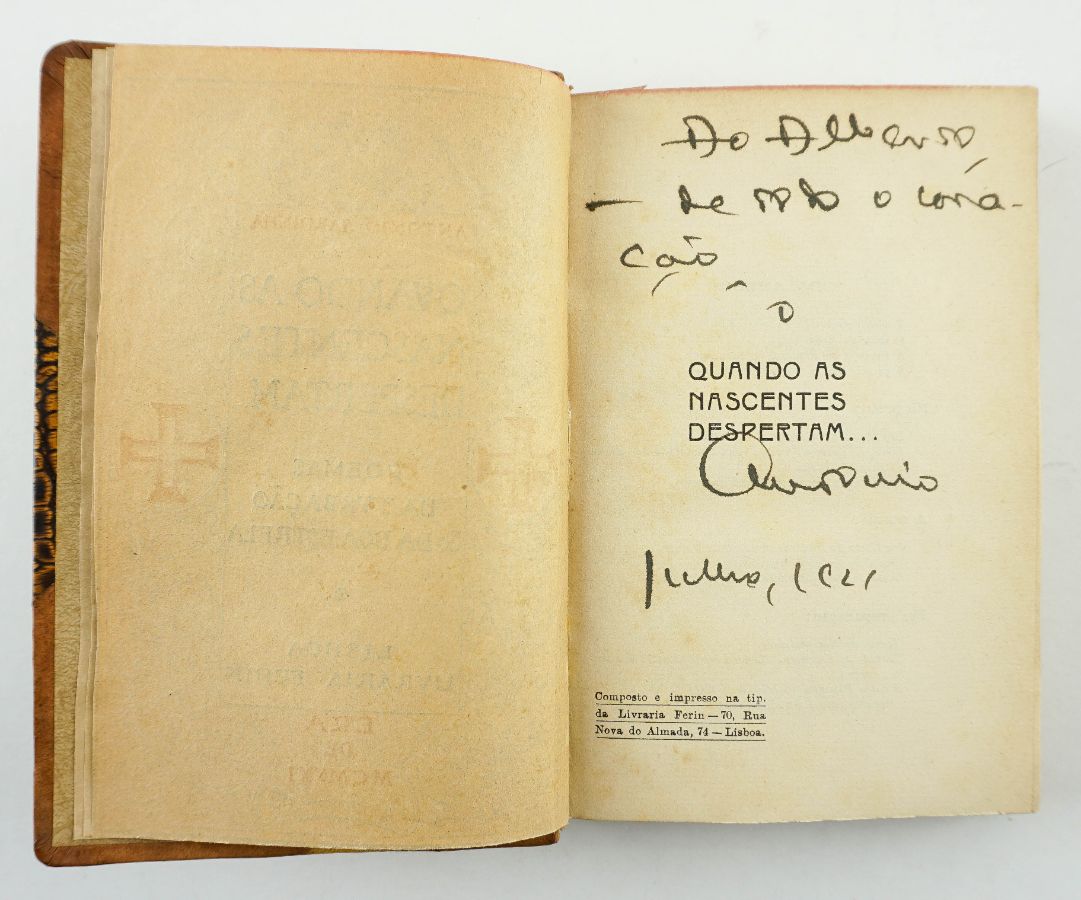 Ao Alberto,
— de todo o cora-
ção,
o
QUANDO AS
NASCENTES
DESPERTAM...
Antonio
Julho, 1921
Composto e impresso na tip.
da Livraria Ferin — 70, Rua
Nova do Almada, 74 — Lisboa.